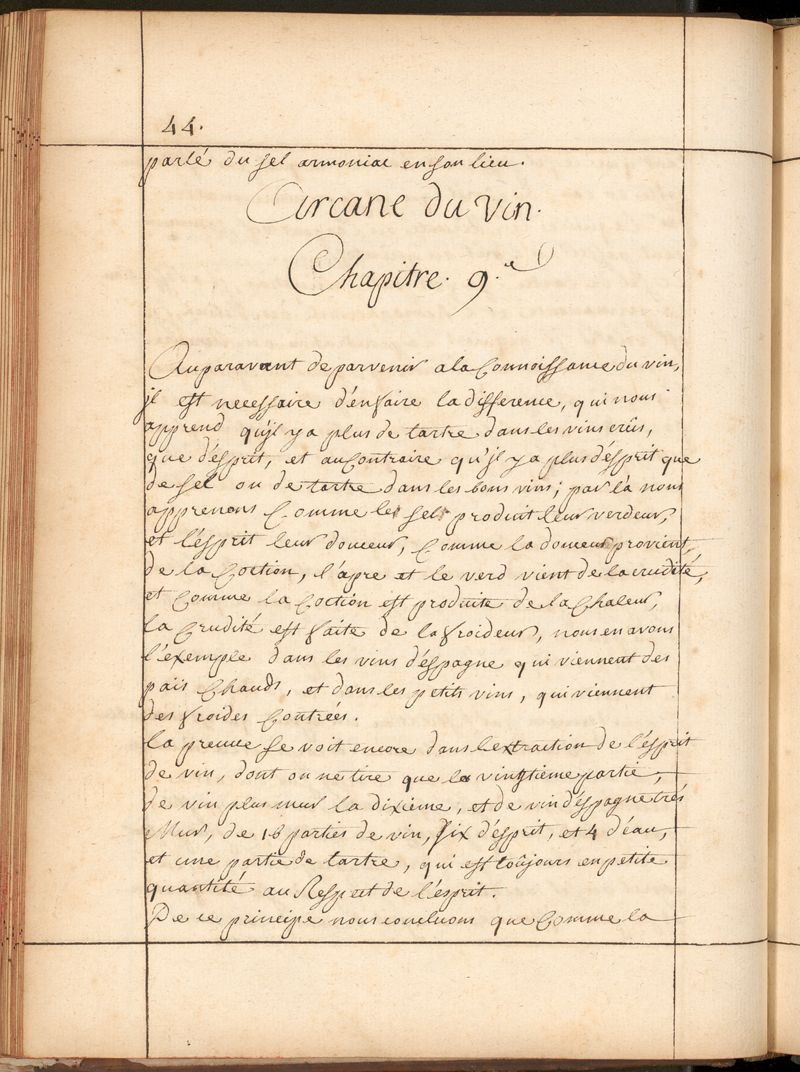 44.
parlé du sel armoniac en son lieu.
Arcane du vin.
Chapitre. 9.e
Auparavent de parvenir a la Connoissance du vin,
jl est necessaire d'en faire la difference, qui nous
apprend qu'jl y a plus de tartre dans les vins crûs,
que d'ésprit, et au Contraire qu'jl y a plus d'ésprit que
de sel ou de tartre dans les bons vins; par là nous
apprenons Comme le sel produit leur verdeur,
et l'ésprit leur douceur, Comme la douceur provient,
de la Coction, l'apre et le verd vient de la crudité,
et Comme la Coction est produite de la Chaleur,
la Crudité est faite de la froideur, nous en avons
l'exemple dans les vins d'éspagne qui viennent des
païs Chauds, et dans les petits vins, qui viennent
des froides Contrées.
la preuve se voit encore dans l'extraction de l'ésprit
de vin, dont on ne tire que la vingtième partie,
de vin plus mur la dixième, et de vin d'éspagne trés
Mur, de 16 parties de vin, six d'ésprit, et 4 d'éau,
et une partie de tartre, qui est toûjours en petite
quantité au Respect de l'ésprit.
De ce principe nous concluons que Comme la